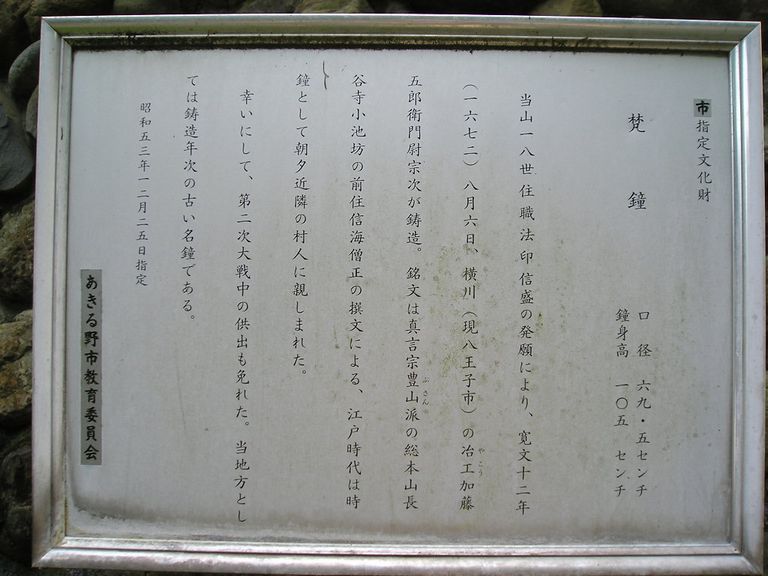 市指定文化財
梵鐘
口径 六九・五センチ
鐘身高 一〇五 センチ
当山一八世住職法印信盛の発願により、寛文十二年
(一六七二)八月六日、横川(現八王子市)の冶工加藤
五郎衛門尉宗次が鋳造。銘文は真言宗豊山派の総本山長
谷寺小池坊の前住信海僧正の撰文による、江戸時代は時
鐘として朝夕近隣の村人に親しまれた。
幸いにして、第二次大戦中の供出も免れた。当地方とし
ては鋳造年次の古い名鐘である。
昭和五三年一二月二五日指定
あきる野市教育委員会